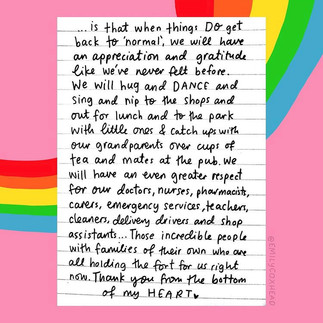 ...is that when things DO get
back to 'normal', we will have
an appreciation and gratitude
like we've never felt before.
We will hug and DANCE and
sing and nip to the shops and
out for lunch and to the park
with little ones & catch ups with
our grandparents over cups of
tea and mates at the pub. We
will have an even greater respect
for our doctors, nurses, pharmacists,
carers, emergency services, teachers,
cleaners, delivery drivers and shop
assistants... Those incredible people
with families of their own who are
all holding the fort for us right
now. Thank you from the bottom
of my HEART
@EMILYCOXHEAD